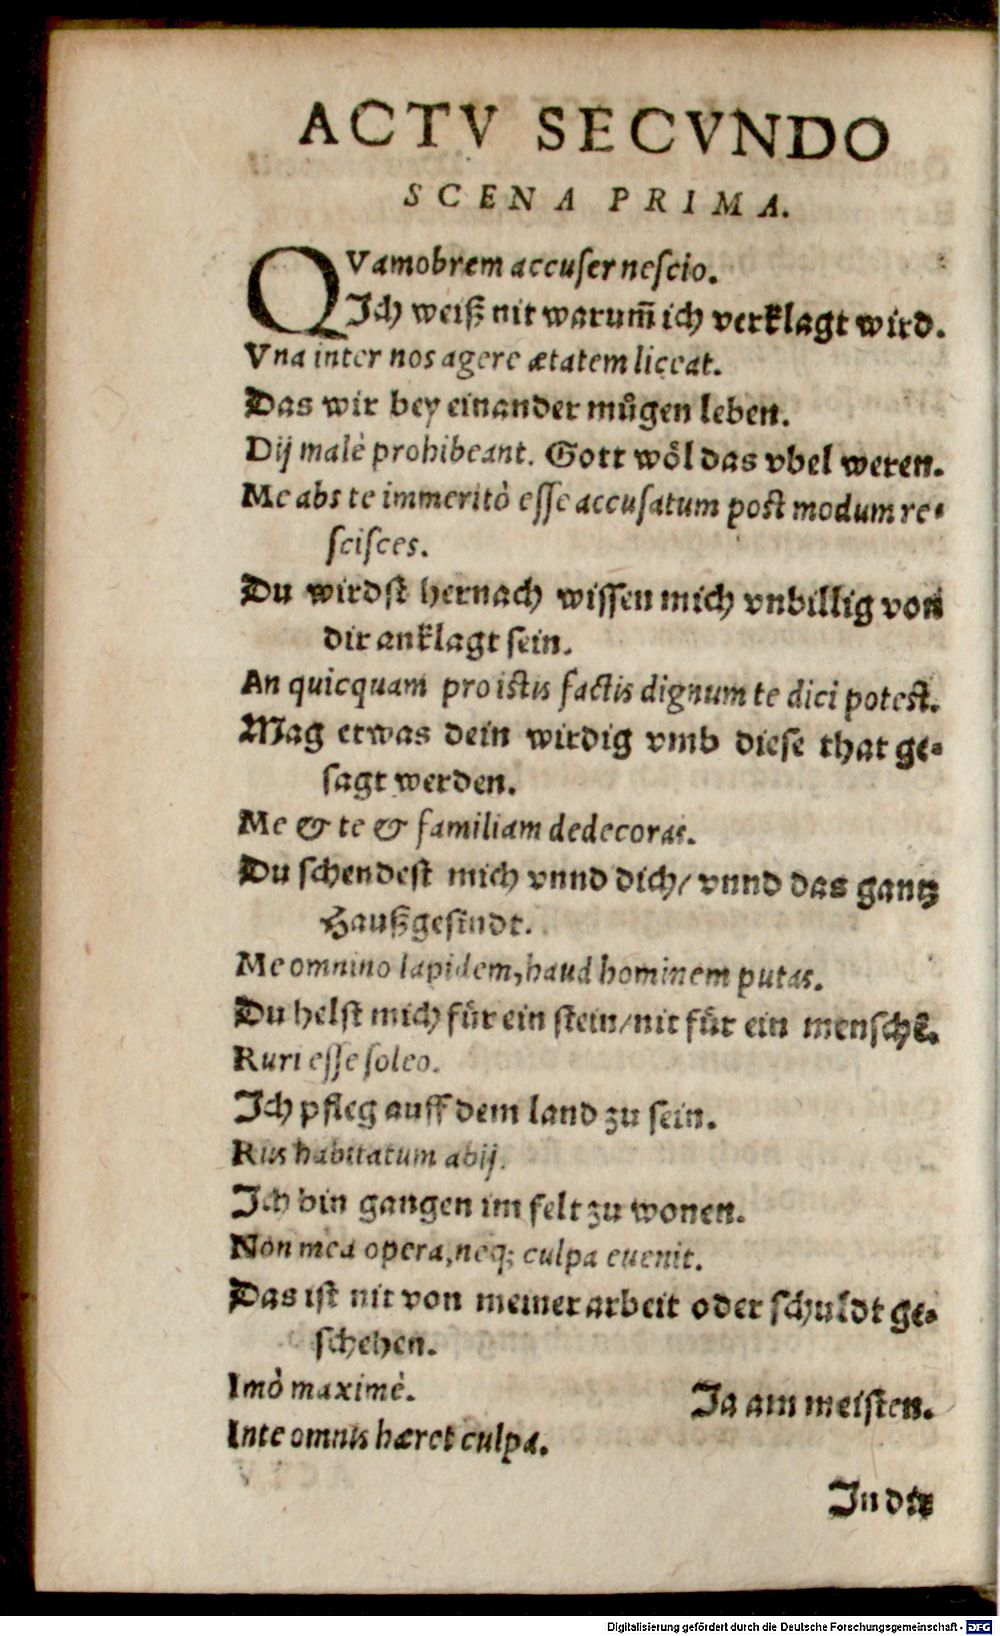 ACTV SECVNDO
SCENA PRIMA.
QVamobrem accuſer neſcio.
Ich weiß nit warum̃ ich verklagt wird.
Vna inter nos agere ætatem liceat.
Das wir bey einander můgen leben.
Dij malè prohibeant. Gott wöl das vbel weren.
Me abs te immeritò eſſe accuſatum poſt modum re-
ſciſces.
Du wirdſt hernach wiſſen mich vnbillig von
dir anklagt ſein.
An quicquam pro iſtis factis dignum te dici poteſt.
Mag etwas dein wirdig vmb dieſe that ge-
ſagt werden.
Me & te & familiam dedecoras.
Du ſchendeſt mich vnnd dich/ vnnd das gantz
Haußgeſindt.
Me omnino lapidem, haud hominem putas.
Du helſt mich für ein ſtein/ nit für ein menſchẽ.
Ruri eſſe ſoleo.
Ich pfleg auff dem land zu ſein.
Rus habitatum abij.
Ich bin gangen im felt zu wonen.
Non mea opera, neq; culpa euenit.
Das iſt nit von meiner arbeit oder ſchuldt ge-
ſchehen.
Imò maximè. Ja am meiſten.
Inte omnis hæret culpa.
In dir
Digitalisierung gefördert durch die Deutsche Forschungsgemeinschaft - DFG